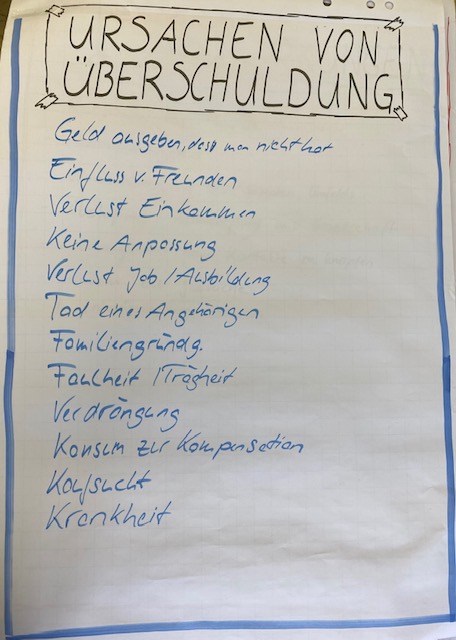 URSACHEN VON
ÜBERSCHULDUNG
Geld ausgeben, dass man nicht hat
Einfluss v. Freunden
Verlust Einkommen
Keine Anpassung
Verlust Job / Ausbildung
Tod eines Angehörigen
Familiengründg.
Faulheit / Trägheit
Verdrängung
Konsum zur Kompensation
Kaufsucht
Krankheit